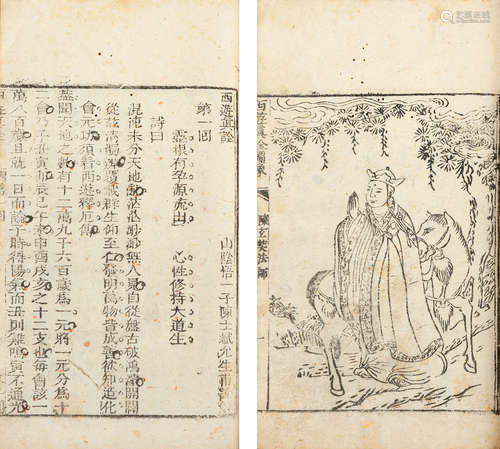 西遊真詮
山陰悟一子陳士斌允生甫
第一回
靈根有孕源流出　心性修持大道生
詩曰
混沌未分天地亂茫茫渺渺無人見自從盤古破鴻濛開闢
從茲清濁辨覆載群生仰至仁發明萬物皆成善欲知造化
會元功須看西遊釋厄傳
蓋聞天地之數有十二萬九千六百歲爲一元將一元分爲十
二會乃子丑寅卯辰巳午未申酉戌亥之十二支也每會該一
萬八百歲且就一日而論子時得陽氣而丑則雞鳴寅不通光
陳玄奘法師